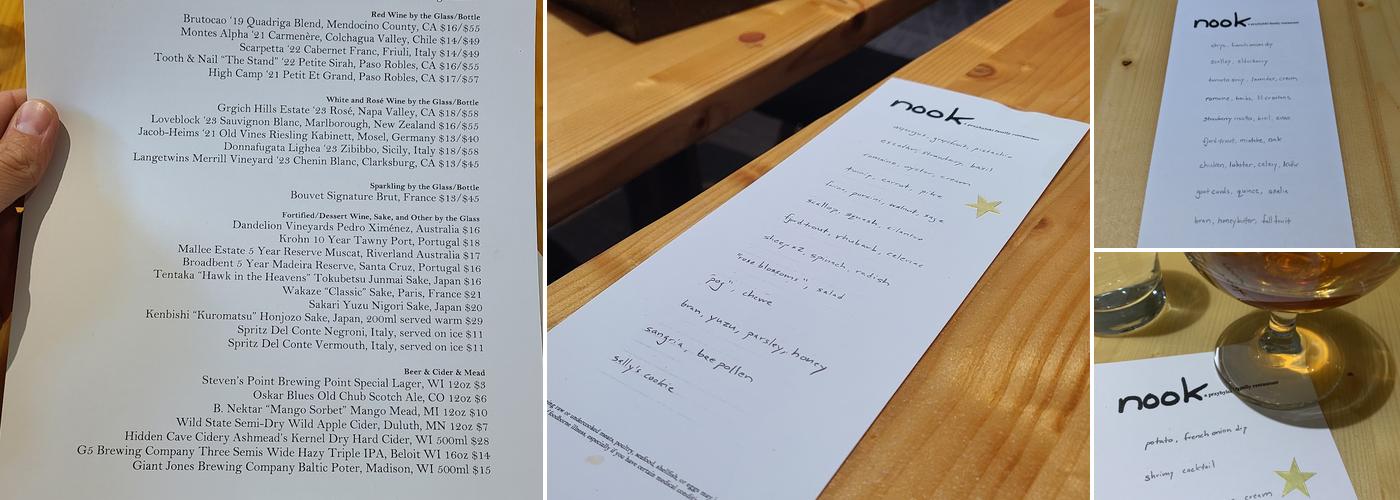 Red Wine by the Glass/Bottle
Brutocao '19 Quadriga Blend, Mendocino County, CA $16/$55
Montes Alpha '21 Carmenère, Colchagua Valley, Chile $14/$49
Scarpetta '22 Cabernet Franc, Friuli, Italy $14/$49
Tooth & Nail "The Stand" '22 Petite Sirah, Paso Robles, CA $16/$55
High Camp '21 Petit Et Grand, Paso Robles, CA $17/$57
White and Rosé Wine by the Glass/Bottle
Grgich Hills Estate '23 Rosé, Napa Valley, CA $18/$58
Loveblock '23 Sauvignon Blanc, Marlborough, New Zealand $16/$55
Jacob-Heims '21 Old Vines Riesling Kabinett, Mosel, Germany $13/$40
Donnafugata Lighea '23 Zibibbo, Sicily, Italy $18/$58
Langetwins Merrill Vineyard '23 Chenin Blanc, Clarksburg, CA $13/$45
Sparkling by the Glass/Bottle
Bouvet Signature Brut, France $13/$45
Fortified/Dessert Wine, Sake, and Other by the Glass
Dandelion Vineyards Pedro Ximénez, Australia $16
Krohn 10 Year Tawny Port, Portugal $18
Mallee Estate 5 Year Reserve Muscat, Riverland Australia $17
Broadbent 5 Year Madeira Reserve, Santa Cruz, Portugal $16
Tentaka "Hawk in the Heavens" Tokubetsu Junmai Sake, Japan $16
Wakaze "Classic" Sake, Paris, France $21
Sakari Yuzu Nigori Sake, Japan $20
Kenbishi "Kuromatsu" Honjozo Sake, Japan, 200ml served warm $29
Spritz Del Conte Negroni, Italy, served on ice $11
Spritz Del Conte Vermouth, Italy, served on ice $11
Beer & Cider & Mead
Steven's Point Brewing Point Special Lager, WI 12oz $3
Oskar Blues Old Chub Scotch Ale, CO 12oz $6
B. Nektar "Mango Sorbet" Mango Mead, MI 12oz $10
Wild State Semi-Dry Wild Apple Cider, Duluth, MN 12oz $7
Hidden Cave Cidery Ashmead's Kernel Dry Hard Cider, WI 500ml $28
G5 Brewing Company Three Semis Wide Hazy Triple IPA, Beloit WI 16oz $14
Giant Jones Brewing Company Baltic Poter, Madison, WI 500ml $15
nook a przybylski family restaurant
asparagus, grapefruit, pistachio
escolar, strawberry, basil
romaine, oyster, cream
turnip, carrot, pike
farro, porcini, walnut, sage
scallop, squash, cilantro
fjord trout, rhubarb, celeriac
sheep x2, spinach, radish
"rose blossoms", salad
"pog", chowe
bran, yuzu, parsley, honey
sangria, bee pollen
sally's cookie
ing raw or undercooked meats, poultry, seafood, shellfish, or eggs may
foodborne illness, especially if you have certain medical conditi
nook a przybylski family restaurant
chip, french onion dip
scallop, elderberry
tomato soup, lavender, cream
romaine, herbs, croutons
strawberry, basil
fjord trout, oak
chicken, lobster, celery,
goat curds, quince,
bran, honeybutter, fall fruit
nook a przybylski family restaurant
potato, french onion dip
shrimp cocktail
cream